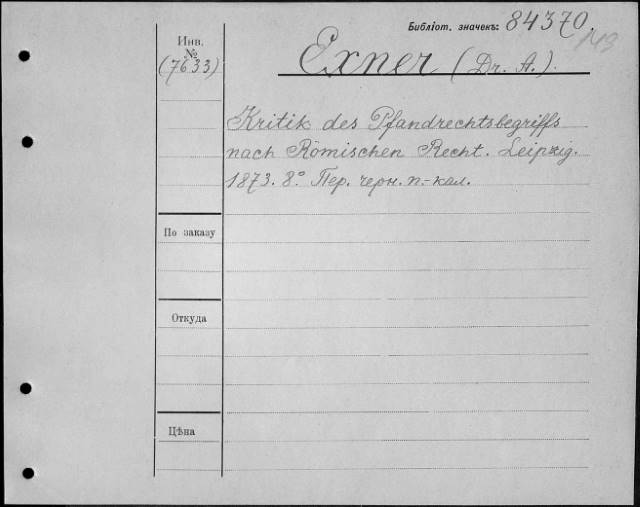 Библіот. значекъ: 84370.
149
Инв.
№
(7633)
Exner (Dr. A.).
Kritik des Pfandrechtsbegriffs
nach Römischen Recht. Leipzig.
1873. 8° Пер. черн. п.-кал.
По заказу
Откуда
Цѣна